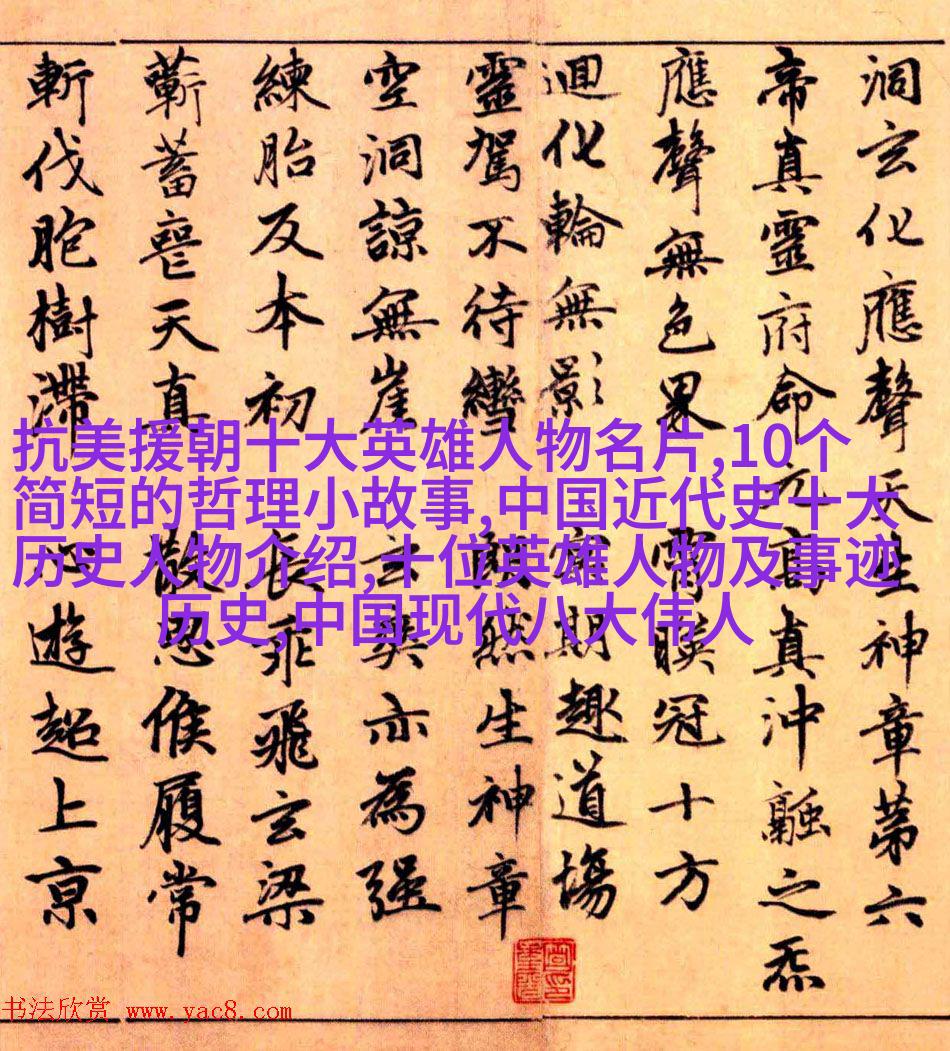 洞玄化應聲天生神章苐六
帝真靈府命元高真沖融之炁
應聲無色界 霄暎冠十方
迴化輪無影 冥期趣道場
靈駕不待轡 然生神章
空洞諒無崖 玄爽亦為强
練胎反本初 長乖飛玄梁
蘄蓄喪天真 散思候履常
斬伐胞樹滯 心遊超上京
抗美援朝十大英雄人物名片,10个
简短的哲理小故事,中国近代史十大
历史人物介绍,十位英雄人物及事迹
历史,中国现代八大伟人
书法欣赏 www.yac8.com